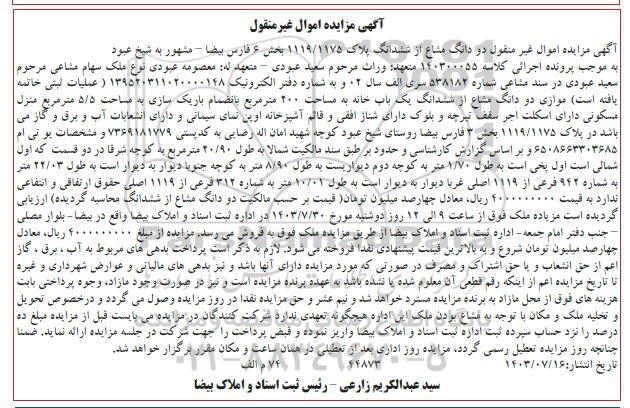 آگهی مزایده اموال غیرمنقول
آگهی مزایده اموال غیر منقول دو دانگ مشاع از ششدانگ پلاک ۱۱۱۹/۱۱۷۵ بخش ۶ فارس بیضا – مشهور به شیخ عبود
به موجب پرونده اجرائی کلاسه ۱۴۰۳۰۰۰۵۵ متعهد: وراث مرحوم سعید عبودی – متعهد له: معصومه عبودی نوع ملک سهام مشاعی مرحوم
سعید عبودی در سند مشاعی شماره ۵۳۸۱۸۲ سری الف سال ۰۲ و به شماره دفتر الکترونیک ۱۳۹۵۲۰۳۱۱۰۲۰۰۰۰۱۴۸ ( عملیات ثبتی خاتمه
یافته است) موازی دو دانگ مشاع از ششدانگ یک باب خانه به مساحت ۲۰۰ مترمربع بانضمام باریک سازی به مساحت ۵/۵ مترمربع منزل
مسکونی دارای اسکلت اجر سقف تیرچه و بلوک دارای شناژ افقی و قائم آشپزخانه اوپن نمای سیمانی و دارای انشعابات آب و برق و گاز می
باشد در پلاک ۱۱۱۹/۱۱۷۵ بخش ۳ فارس بیضا روستای شیخ عبود کوچه شهید امان اله رضایی به کدپستی ۷۳۶۹۱۸۱۷۷۹ و مشخصات یو تی ام
۶۵۰۸۶۶۳۳۰۳۶۸۵ و بر اساس گزارش کارشناسی و حدود بر طبق سند مالکیت شمالا به طول ۲۰/۹۰ مترمربع به کوچه شرقا در دو قسمت که اول
شمالی است اول پخی است به طول ۱/۷۰ متر به کوچه دوم دیواریست به طول ۸/۹۰ متر به کوچه جنوبا دیوار به دیوار است به طول ۲۲/۰۳ متر
به شماره ۹۴۲ فرعی از ۱۱۱۹ اصلی غربا دیوار به دیوار است به طول ۱۰/۰۱ متر به شماره ۳۱۲ فرعی از ۱۱۱۹ اصلی حقوق ارتفاقی و انتفاعی
ندارد به قیمت ۴۰۰۰۰۰۰۰۰۰ ریال، معادل چهارصد میلیون تومان( قیمت بر حسب مالکیت دو دانگ مشاع از ششدانگ محاسبه گردیده) ارزیابی
گردیده است مزیاده ملک فوق از ساعت ۹ الی ۱۲ روز دوشنبه مورخ ۱۴۰۳/۷/۳۰ در اداره ثبت اسناد و املاک بیضا واقع در بیضا- بلوار مصلی
– جنب دفتر امام جمعه- اداره ثبت اسناد و املاک بیضا از طریق مزایده ملک فوق به فروش می رسد. مزایده از مبلغ ۴۰۰۰۰۰۰۰۰۰ ریال، معادل
چهارصد میلیون تومان شروع و به بالاترین قیمت پیشنهادی نقدا فروخته می شود. لازم به ذکر است پرداخت بدهی های مربوط به آب ، برق ، گاز
اعم از حق انشعاب و یا حق اشتراک و مصرف در صورتی که مورد مزایده دارای آنها باشد و نیز بدهی های مالیاتی و عوارض شهرداری و غیره
تا تاریخ مزایده اعم از اینکه رقم قطعی آن معلوم شده یا نشده باشد به عهده برنده مزایده است و نیز در صورت وجود مازاد، وجوه پرداختی بابت
هزینه های فوق از محل مازاد به برنده مزایده مسترد خواهد شد و نیم عشر و حق مزایده نقدا در روز مزایده وصول می گردد و درخصوص تحویل
و تخلیه ملک و مکان با توجه به مشاع بودن ملک این اداره هیچگونه تعهدی ندارد شرکت کنندگان در مزایده می بایست قبل از مزایده مبلغ ده
درصد را نزد حساب سپرده ثبت اداره ثبت اسناد و املاک بیضا واریز نموده و قبض پرداخت را جهت شرکت در جلسه مزایده ارائه نماید. ضمنا
چنانچه روز مزایده تعطیل رسمی گردد، مزایده روز اداری بعد از تعطیلی در همان ساعت و مکان مقرر برگزار خواهد شد.
تاریخ انتشار: ۱۴۰۳/۰۷/۱۶ ۴۴۸۷۳ ۷۴ م الف
سید عبدالکریم زارعی – رئیس ثبت اسناد و املاک بیضا